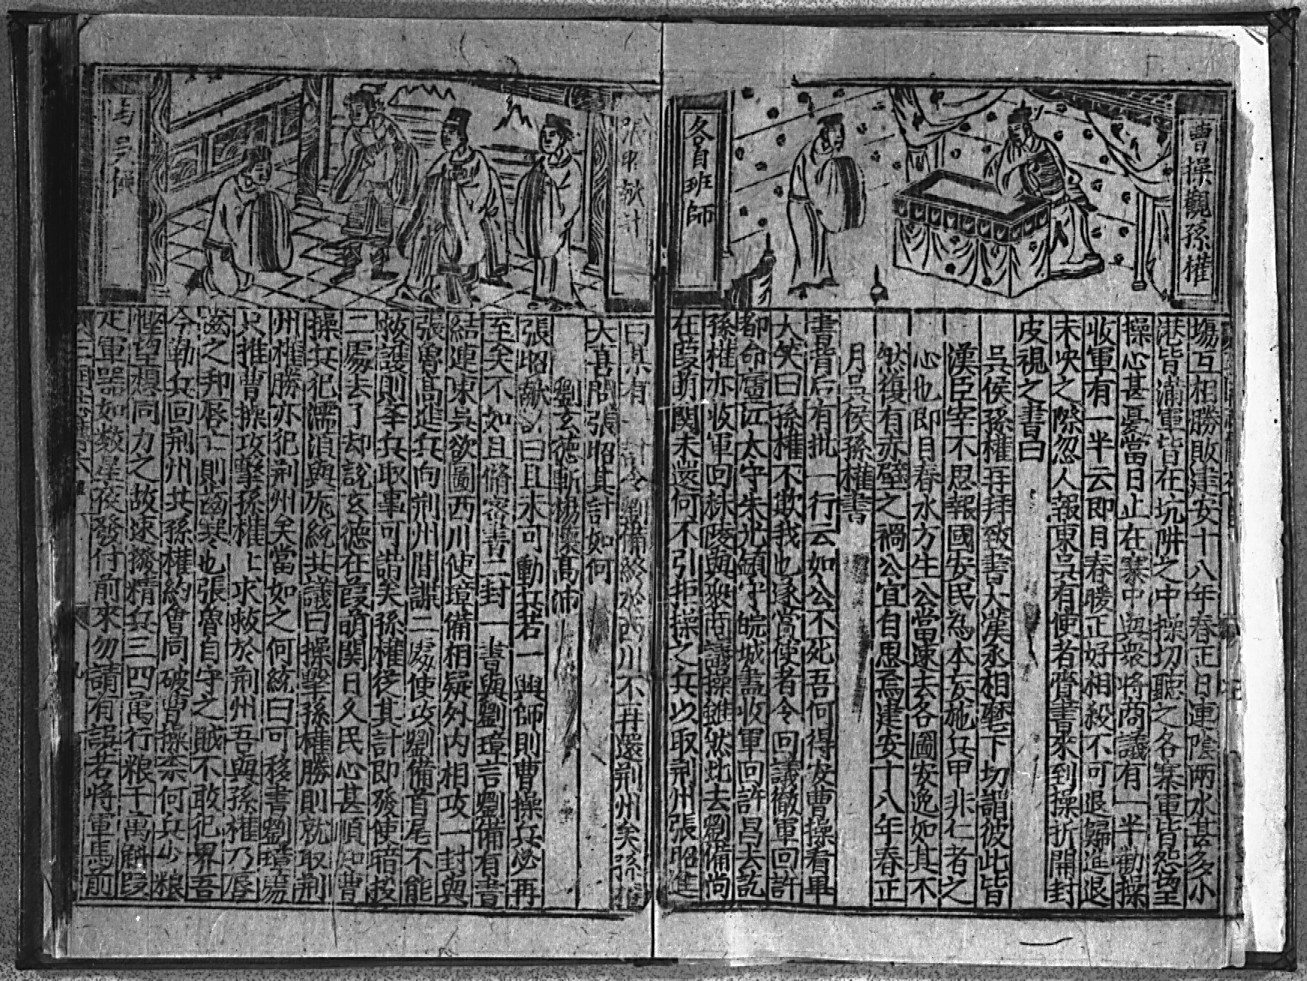 曹操觀孫權
各自班師
塲互相勝敗建安十八年春正日連陰雨水甚多小
港皆滿軍皆在坑阱之中操切聽之各寨軍皆怨望
操心甚憂當日止在寨中與衆將商議有一半勸操
收軍有一半云即目春暖正好相殺不可退歸進退
未决之際忽人報東吳有使者賫書來到操折開封
皮視之書曰
吳侯孫權再拜致書大漢丞相麾下切謂彼此皆
漢臣宰不思報國安民為本妄施兵甲非仁者之
心也即目春水方生公當速去各圖安逸如其不
然復有赤壁之禍公宜自思焉建安十八年春正
月吳侯孫權書
書背后有批一行云如公不死吾何得安曹操看畢
大笑曰孫權不欺我也遂賞使者令回議徹軍回許
都命廬江太守朱光領守皖城盡收軍回許昌去訖
孫權亦收軍回秣陵與衆商議操雖然北去劉備尚
在葭萌関未還何不引拒操之兵以取荆州張昭進
張昭献計
曰某有一計令劉備終於西川不再還荆州矣孫權
大喜問張昭其計如何
劉玄德斬楊懷高沛
張昭献計曰且未可動兵若一興師則曹操兵必再
至矣不如且脩密書二封一書與劉璋言劉備有書
結連東吳欲圖西川使璋備相疑外内相攻一封與
張魯髙進兵向荆州間諜二處使攻劉備首尾不能
救護則举兵取事可諧矣孫權從其計即發使箱投
二處去了却說玄德在葭萌関日久民心甚順知曹
操兵犯濡湏與龐統共議曰操擊孫權勝則就取荆
州權勝亦犯荆州矣當如之何統曰可移書劉璋處
只推曹操攻擊孫權求救於荆州吾與孫權乃唇
齒之邦唇亡則齒寒也張魯自守之賊不敢犯界吾
今勒兵回荆州共孫權約會同破曹操柰何兵少粮
慳望穆同力之故速撥精兵三四萬行粮十萬斛叚
疋軍器如数星夜發付前來勿請有誤若將軍馬前